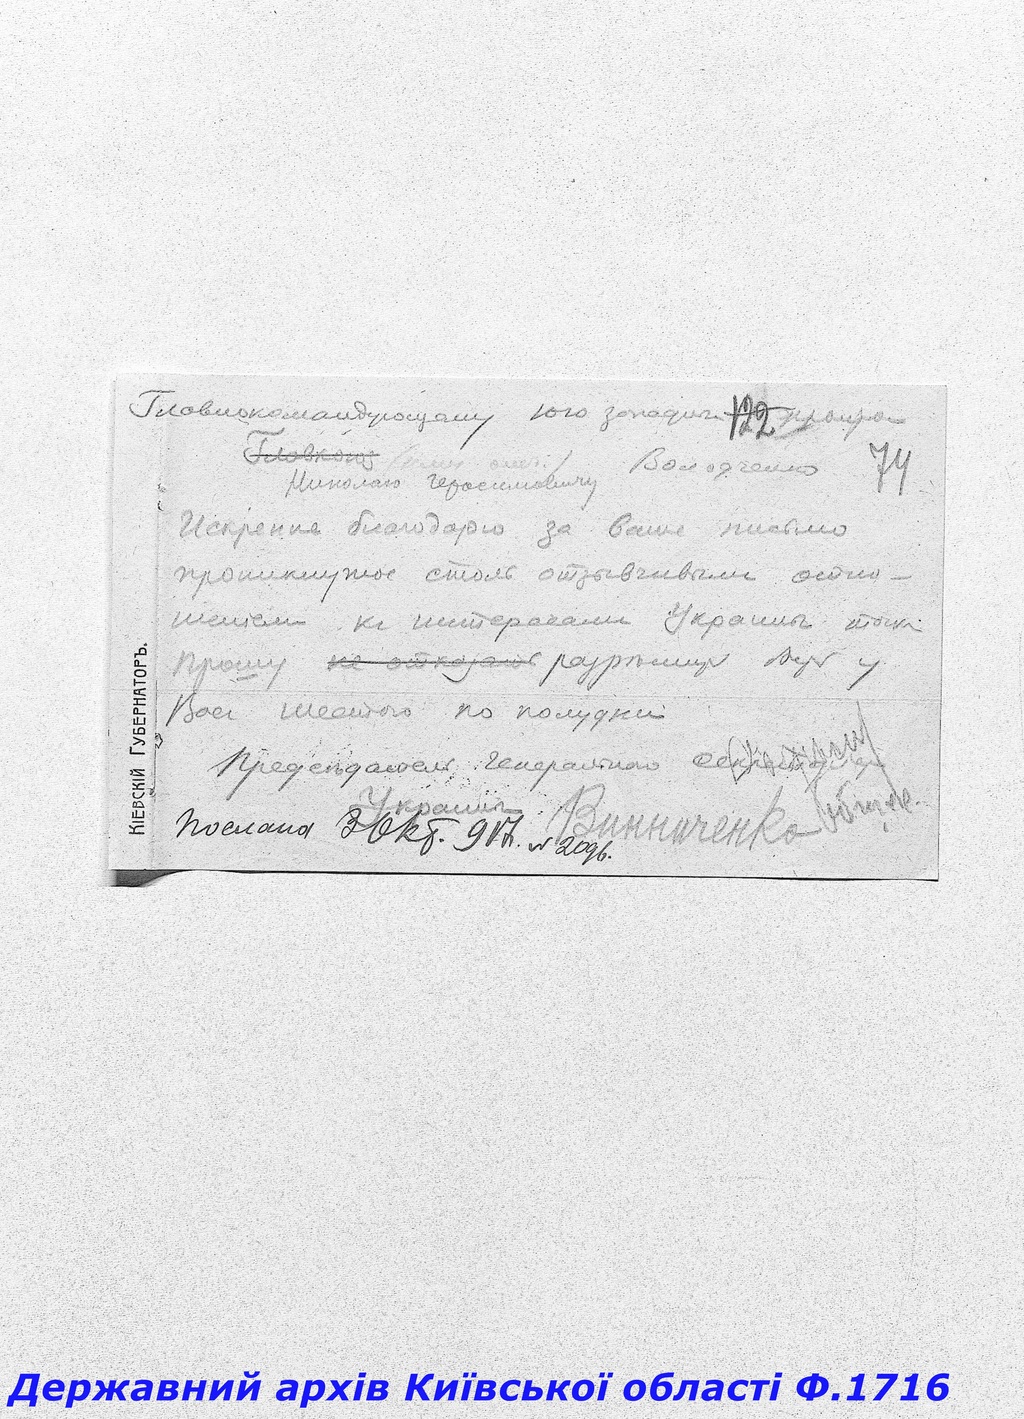 Главнокомандующему юго западным 122 фронтом
Главком
Володченко 74
Николаю Герасимовичу
Искренне благодарю за ваше письмо
проникнутое столь отзывчивым отно-
шением к интересам Украины
Прошу не отказать разрешить быть у
Вас шестого по полудни
Председатель Генерального Секретариата
Украины Винниченко
Послана 3 Окт. 917. № 2096.
КІЕВСКІЙ ГУБЕРНАТОРЪ.
Державний архів Київської області Ф.1716